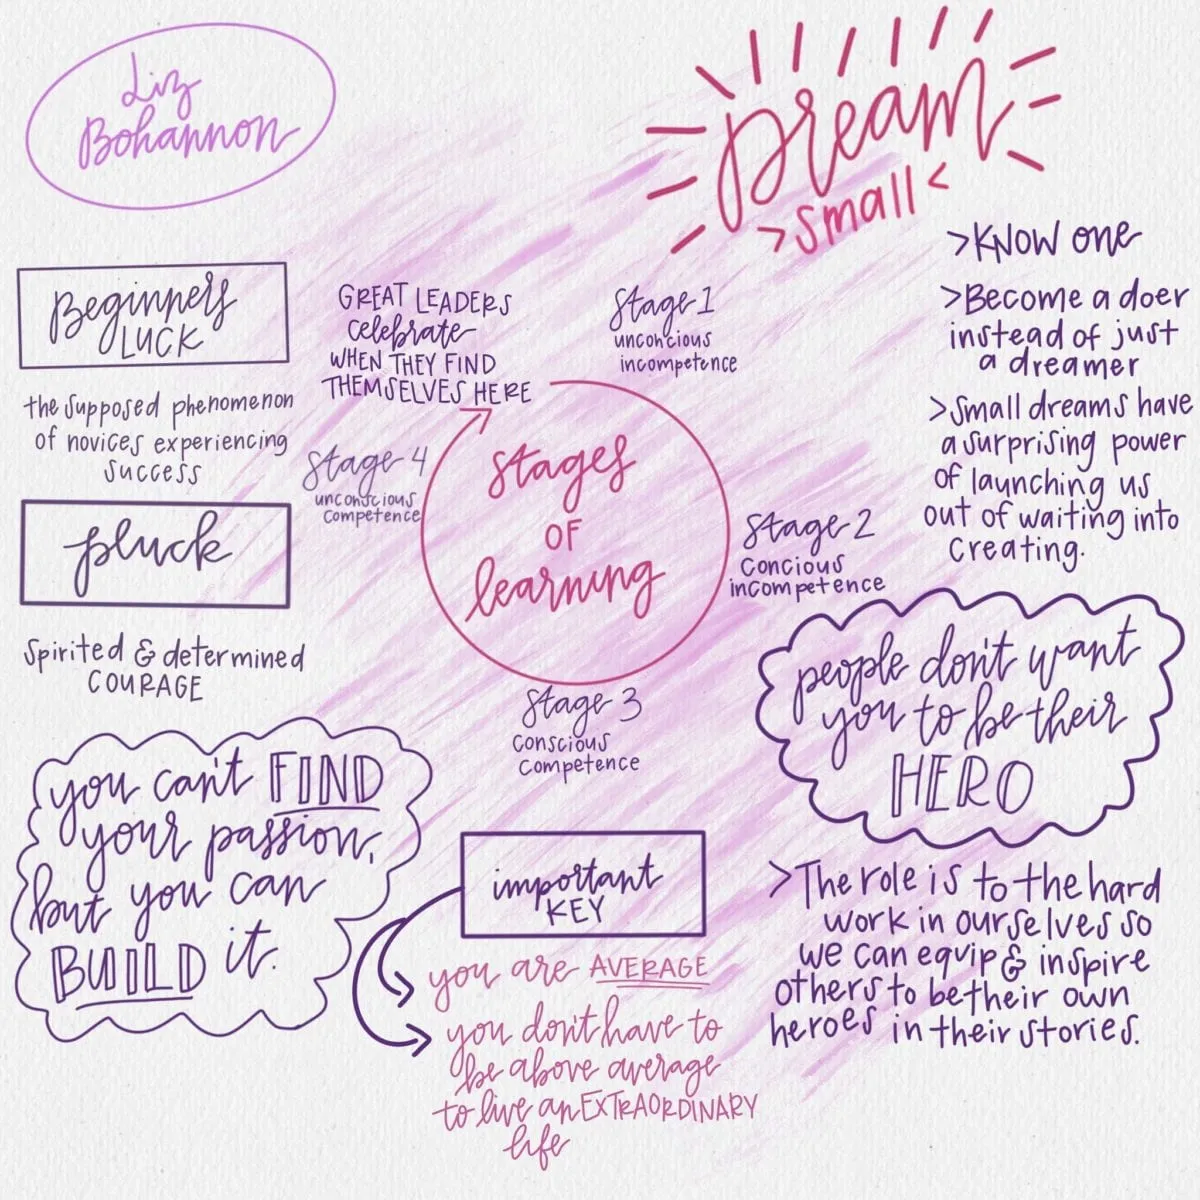 Liz
Bohannon
Dream
>small<
>KNOW one
>Become a doer
instead of just
a dreamer
>Small dreams have
a surprising power
of launching us
out of waiting into
creating.
Beginners
LUCK
the supposed phenomenon
of novices experiencing
success
pluck
Spirited & determined
COURAGE
GREAT LEADERS
celebrate
WHEN THEY FIND
THEMSELVES HERE
Stage 1
unconcious
incompetence
stages
OF
learning
Stage 2
concious
incompetence
Stage 3
conscious
competence
Stage 4
unconscious
competence
you can't FIND
your passion,
but you can
BUILD it.
important
KEY
you are AVERAGE
you don't have to
be above average
to live an EXTRAORDINARY
life
people don't want
you to be their
HERO
>The role is to the hard
work in ourselves so
we can equip & inspire
others to be their own
heroes in their stories.